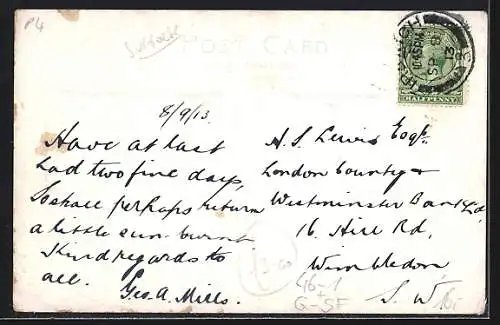 P4
Suffolk
POST CARD
10.45PM
SP 8
13
HALFPENNY
8/9/13.
Have at last
had two fine days,
So shall perhaps return
a little sun-burnt
Kind regards to
all.
Geo. A. Mills.
H. S. Lewis Esqr.
London County &
Westminster Bank Ltd
16. Hill Rd,
Wimbledon
S. W.
G-SF